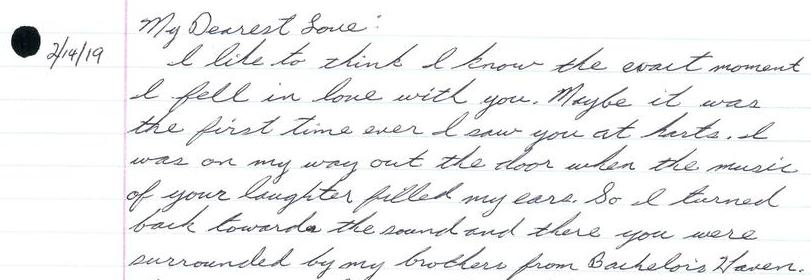 My Dearest Love:
2/14/19
I like to think I know the exact moment
I fell in love with you. Maybe it was
the first time ever I saw you at harts. I
was on my way out the door when the music
of your laughter filled my ears. So I turned
back towards the sound and there you were
surrounded by my brothers from Bachelors Haven.